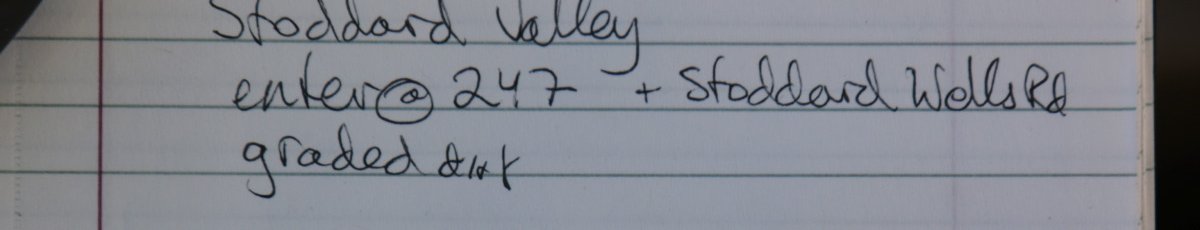 Stoddard Valley
enter @ 247 + Stoddard Wells Rd
graded dirt